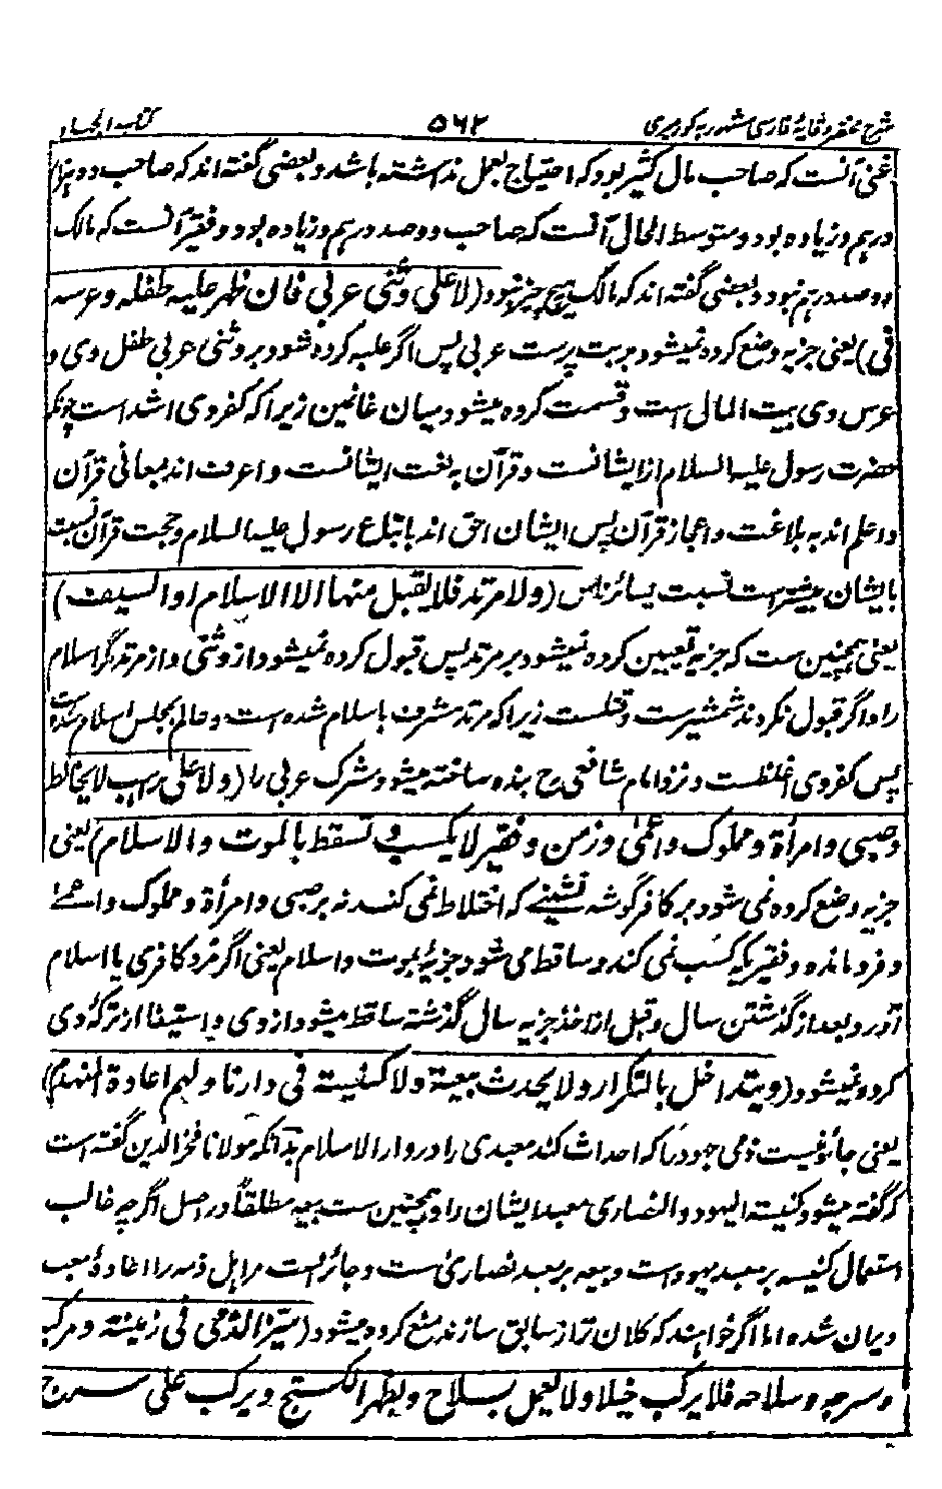 شرح مختصر وقایہ فارسی مشہور بہ کور میری ۵۶۲ کتاب الجہاد
غنی آنست کہ صاحب مال کثیر بود کہ احتیاج بعمل نداشتہ باشد و بعضی گفتہ اند کہ صاحب دہ ہزار
درہم و زیادہ بود و متوسط الحال آنست کہ صاحب دو صد درہم و زیادہ بود و فقیر آنست کہ مالک
دو صد درہم نبود و بعضی گفتہ اند کہ مالک ہیچ چیز نبود (لا علی وثنی عربی فان ظہر علیہ طفلہ و عرسہ
فی) یعنی جزیہ وضع کردہ نمیشود بر بت پرست عربی پس اگر غلبہ کردہ شود بر وثنی عربی طفل وی و
عرس وی بیت المال است و قسمت کردہ میشود میان غانمین زیرا کہ کفر وی اشد است چونکہ
حضرت رسول علیہ السلام از ایشانست و قرآن بہ لغت ایشانست و اعرف اند بمعانی قرآن
و اعلم اند بہ بلاغت و اعجاز قرآن پس ایشان احق اند باتباع رسول علیہ السلام و حجت قرآن نسبت
بایشان بیشتر است نسبت بسائر ناس (ولا مرتد فلا یقبل منہما الا الاسلام او السیف)
یعنی ہمچنین ست کہ جزیہ تعیین کردہ نمیشود بر مرتد پس قبول کردہ نمیشود از وثنی و از مرتد مگر اسلام
را و اگر قبول نکردند شمشیرست و قتلست زیرا کہ مرتد مشرف باسلام شدہ است و عالم بمحاسن اسلام شدہ است
پس کفر وی اغلظست و نزد امام شافعی رح بندہ ساختہ میشود مشرک عربی را (ولا علی راہب لا یخالط
و صبی و امرأة و مملوک و اعمی و زمن و فقیر لا یکسب و تسقط بالموت والاسلام) یعنی
جزیہ وضع کردہ نمی شود بر کافر گوشہ نشینے کہ اختلاط نمی کند نہ بر صبی و امرأة و مملوک و اعمے
و فرو ماندہ و فقیریکہ کسب نمی کند و ساقط می شود جزیہ بموت و اسلام یعنی اگر مرد کافری یا اسلام
آورد بعد از گذشتن سال و قبل از اخذ جزیہ سال گذشتہ ساقط میشود از وی و استیفا از ترکہ وی
کردہ نمیشود (ویتداخل بالتکرار ولا یحدث بیعة ولا کنیسة فی دارنا ولہم اعادة المنہدم)
یعنی جائز نیست ذمی جہود را کہ احداث کند معبدی را در دار الاسلام بدانکہ مولانا فخر الدین گفتہ است
کہ گفتہ میشود کنیسة الیہود والنصاری معبد ایشان را و ہمچنین ست بیعہ مطلقاً در اصل اگرچہ غالب
استعمال کنیسہ بر معبد یہود است و بیعہ بر معبد نصاری است و جائز است مر اہل ذمہ را اعادۂ معبد
ویران شدہ اما اگر خواہند کہ کلان تر از سابق سازند منع کردہ میشود (میز الذمی فی زینتہ و مرکبہ
و سرجہ و سلاحہ فلا یرکب خیلا ولا یعمل بسلاح و یظہر الکستیج و یرکب علی سرج